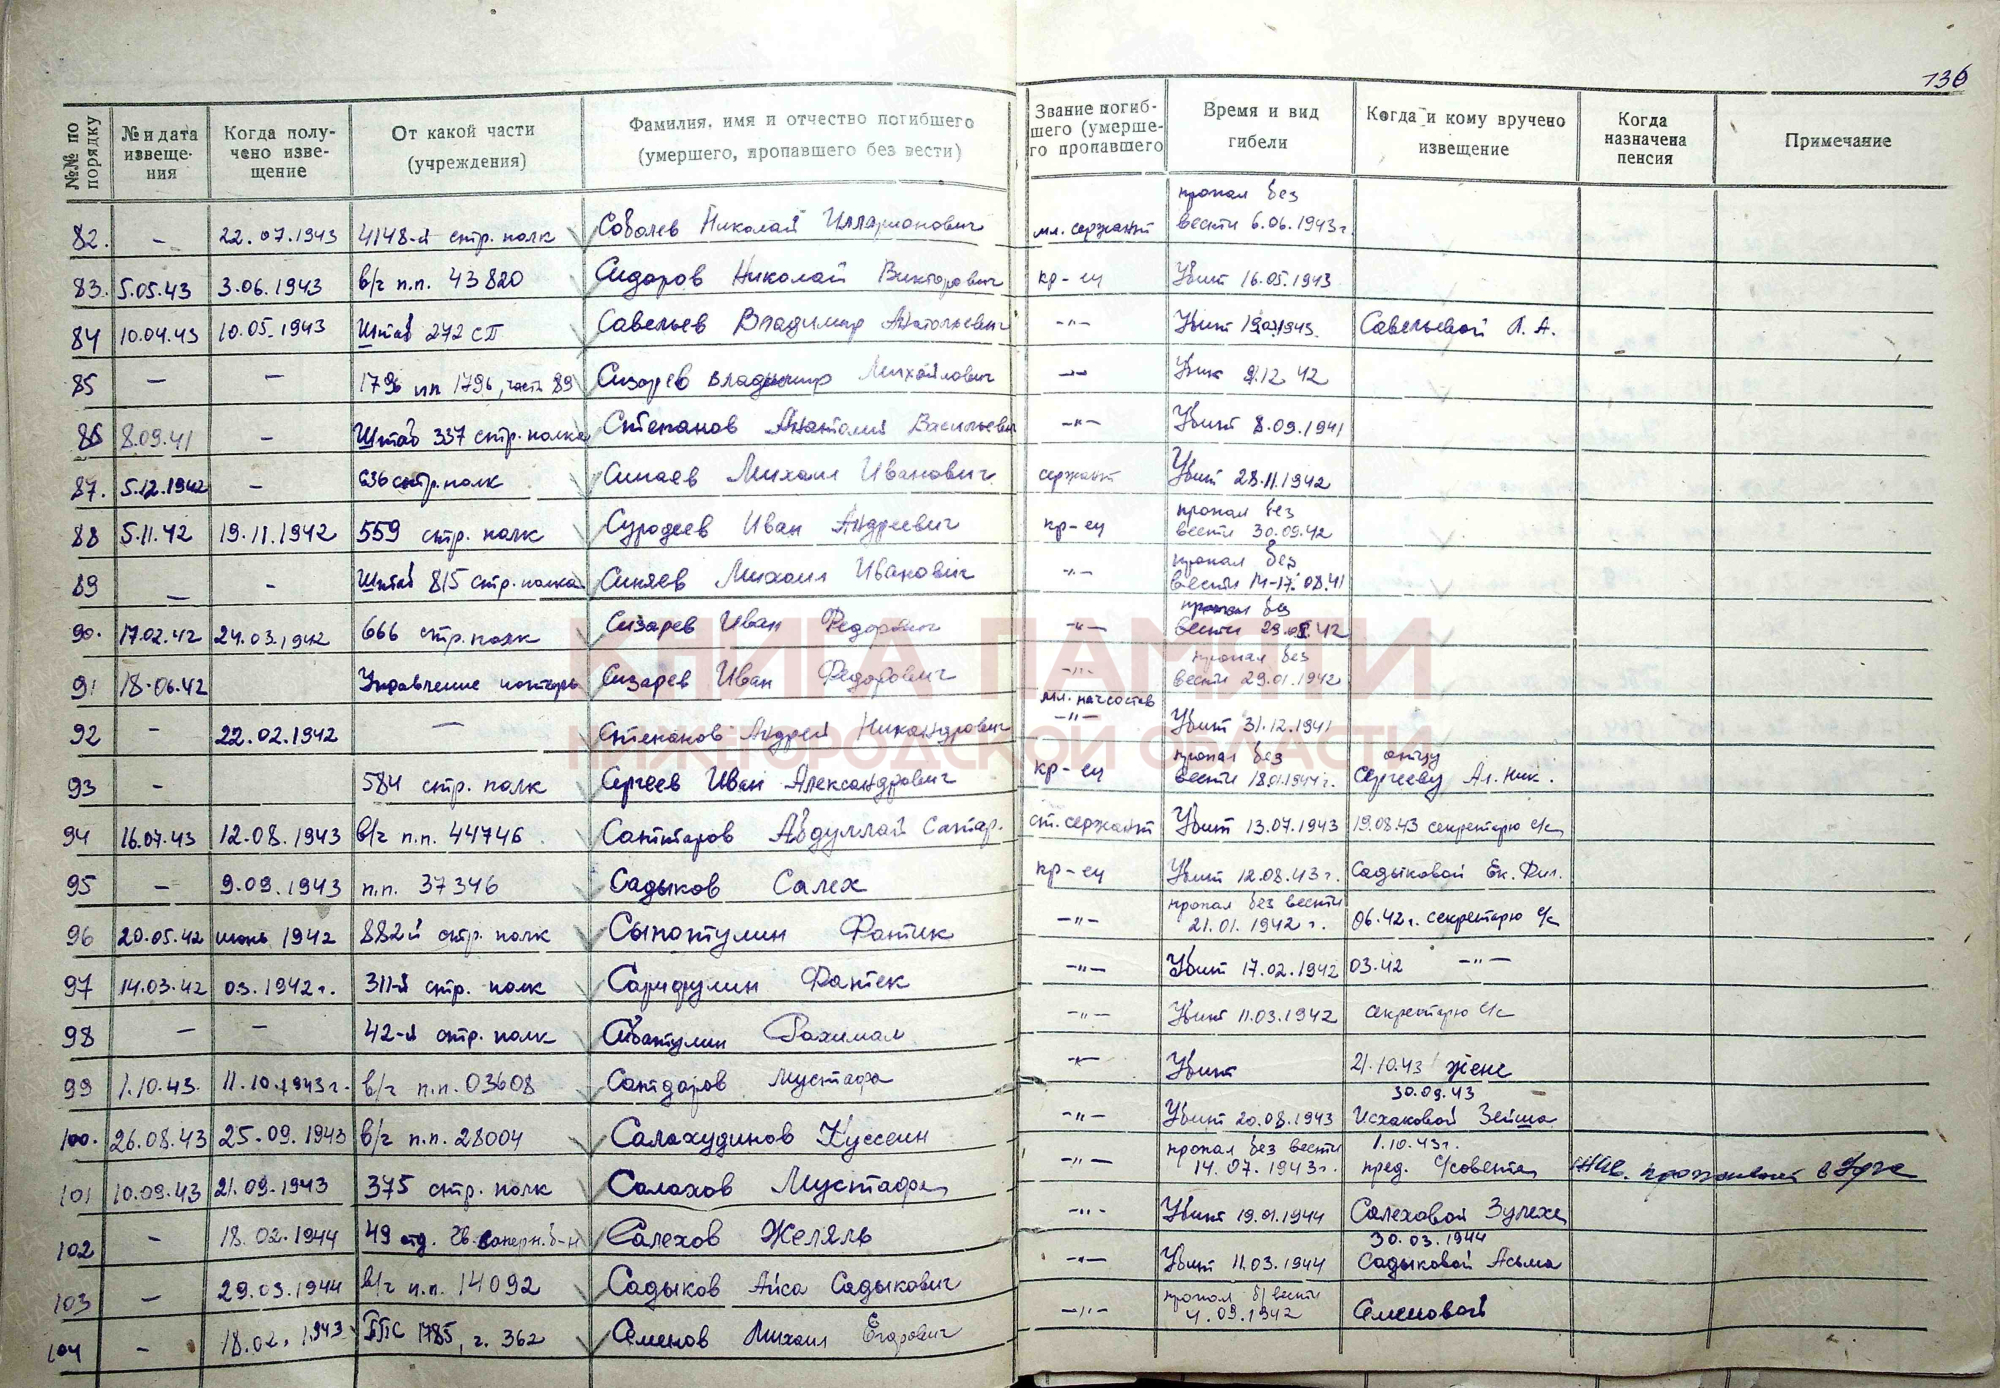 136
№№ по порядку | № и дата извеще-ния | Когда полу-чено изве-щение | От какой части (учреждения) | Фамилия, имя и отчество погибшего (умершего, пропавшего без вести) | Звание погиб-шего (умерше-го пропавшего | Время и вид гибели | Когда и кому вручено извещение | Когда назначена пенсия | Примечание
82. | - | 22.07.1943 | 4148-й стр. полк | Соболев Николай Илларионович | мл. сержант | пропал без вести 6.06.1943г
83. | 5.05.43 | 3.06.1943 | в/ч п.п. 43820 | Сидоров Николай Викторович | кр-ец | Убит 16.05.1943
84 | 10.04.43 | 10.05.1943 | Штаб 272 СП | Савельев Владимир Анатольевич | -"- | Убит | Савельевой А.
85 | - | - | 1796 пп 1796, часть 89 | Сизарев Владимир Михайлович | -"- | 9.12.42
86 | 8.09.41 | - | Штаб 337 стр. полка | Степанов Анатолий Васильевич | -"- | Убит 8.09.1941
87. | 5.12.1942 | - | 636 стр. полк | Михаил Иванович | сержант | Убит 28.11.1942
88 | 5.11.42 | 19.11.1942 | 559 стр. полк | Суродеев Иван Андреевич | кр-ец | пропал без вести 30.09.42
89 | - | - | Штаб 815 стр. полка | Синяев Михаил Иванович | -"- | пропал без вести 14-17.08.41
90. | 17.02.42 | 24.03.1942 | 666 стр. полк | Сизарев Иван Федорович | -"- | пропал без вести
91 | 18.06.42 | Управление потерь | Сизарев Иван Федорович | -"- | пропал без вести 29.01.1942
92 | - | 22.02.1942 | - | Степанов Андрей Никандрович | мл. начсостав -"- | Убит 31.12.1941
93 | - | 584 стр. полк | Сергеев Иван Александрович | кр-ец | пропал без вести 18.01.1944г. | отцу Сергееву Ал. Ник.
94 | 16.07.43 | 12.08.1943 | в/ч п.п. 44746 | Саттаров Абдуллай Сатар. | ст. сержант | Убит 13.07.1943 | 19.08.43 секретарю с/с
95 | - | 9.09.1943 | п.п. 37346 | Садыков Салех | кр-ец | Убит 12.08.43г. | Садыковой Ек. Фил.
96 | 20.05.42 | июнь 1942 | 882й стр. полк | Фантик | -"- | пропал без вести 21.01.1942г. | 06.42г. секретарю с/с
97 | 14.03.42 | 03.1942г. | 311-й стр. полк | Сарифулин Фантек | -"- | Убит 17.02.1942 | 03.42 -"-
98 | - | - | 42-й стр. полк | Сибатулин | -"- | Убит 11.03.1942 | секретарю с/с
99 | 1.10.43. | 11.10.1943г. | в/ч п.п. 03608 | Сайдаров Мустафа | -"- | Убит | 21.10.43 жене
100. | 26.08.43 | 25.09.1943 | в/ч п.п. 28004 | Салахудинов Хуссеин | -"- | Убит 20.08.1943 | 30.09.43 Исхаковой
101 | 10.09.43 | 21.09.1943 | 375 стр. полк | Салахов Мустафа | -"- | пропал без вести 14.07.1943г. | 1.10.43г. пред. с/совета | проживает в Уфе
102 | - | 18.02.1944 | 49 отд. гв. саперн. б-н | Салехов Желяль | -"- | Убит 19.01.1944 | Салеховой Зулехе
103 | - | 29.03.1944 | в/ч п.п. 14092 | Садыков Айса Садыкович | -"- | Убит 11.03.1944 | 30.03.1944 Садыковой Асьма
104 | - | 18.02.1943 | ППС 1785, ч. 362 | Семенов Михаил Егорович | -"- | пропал б/вести 4.09.1942 | Семеновой
КНИГА ПАМЯТИ
НИЖЕГОРОДСКОЙ ОБЛАСТИ